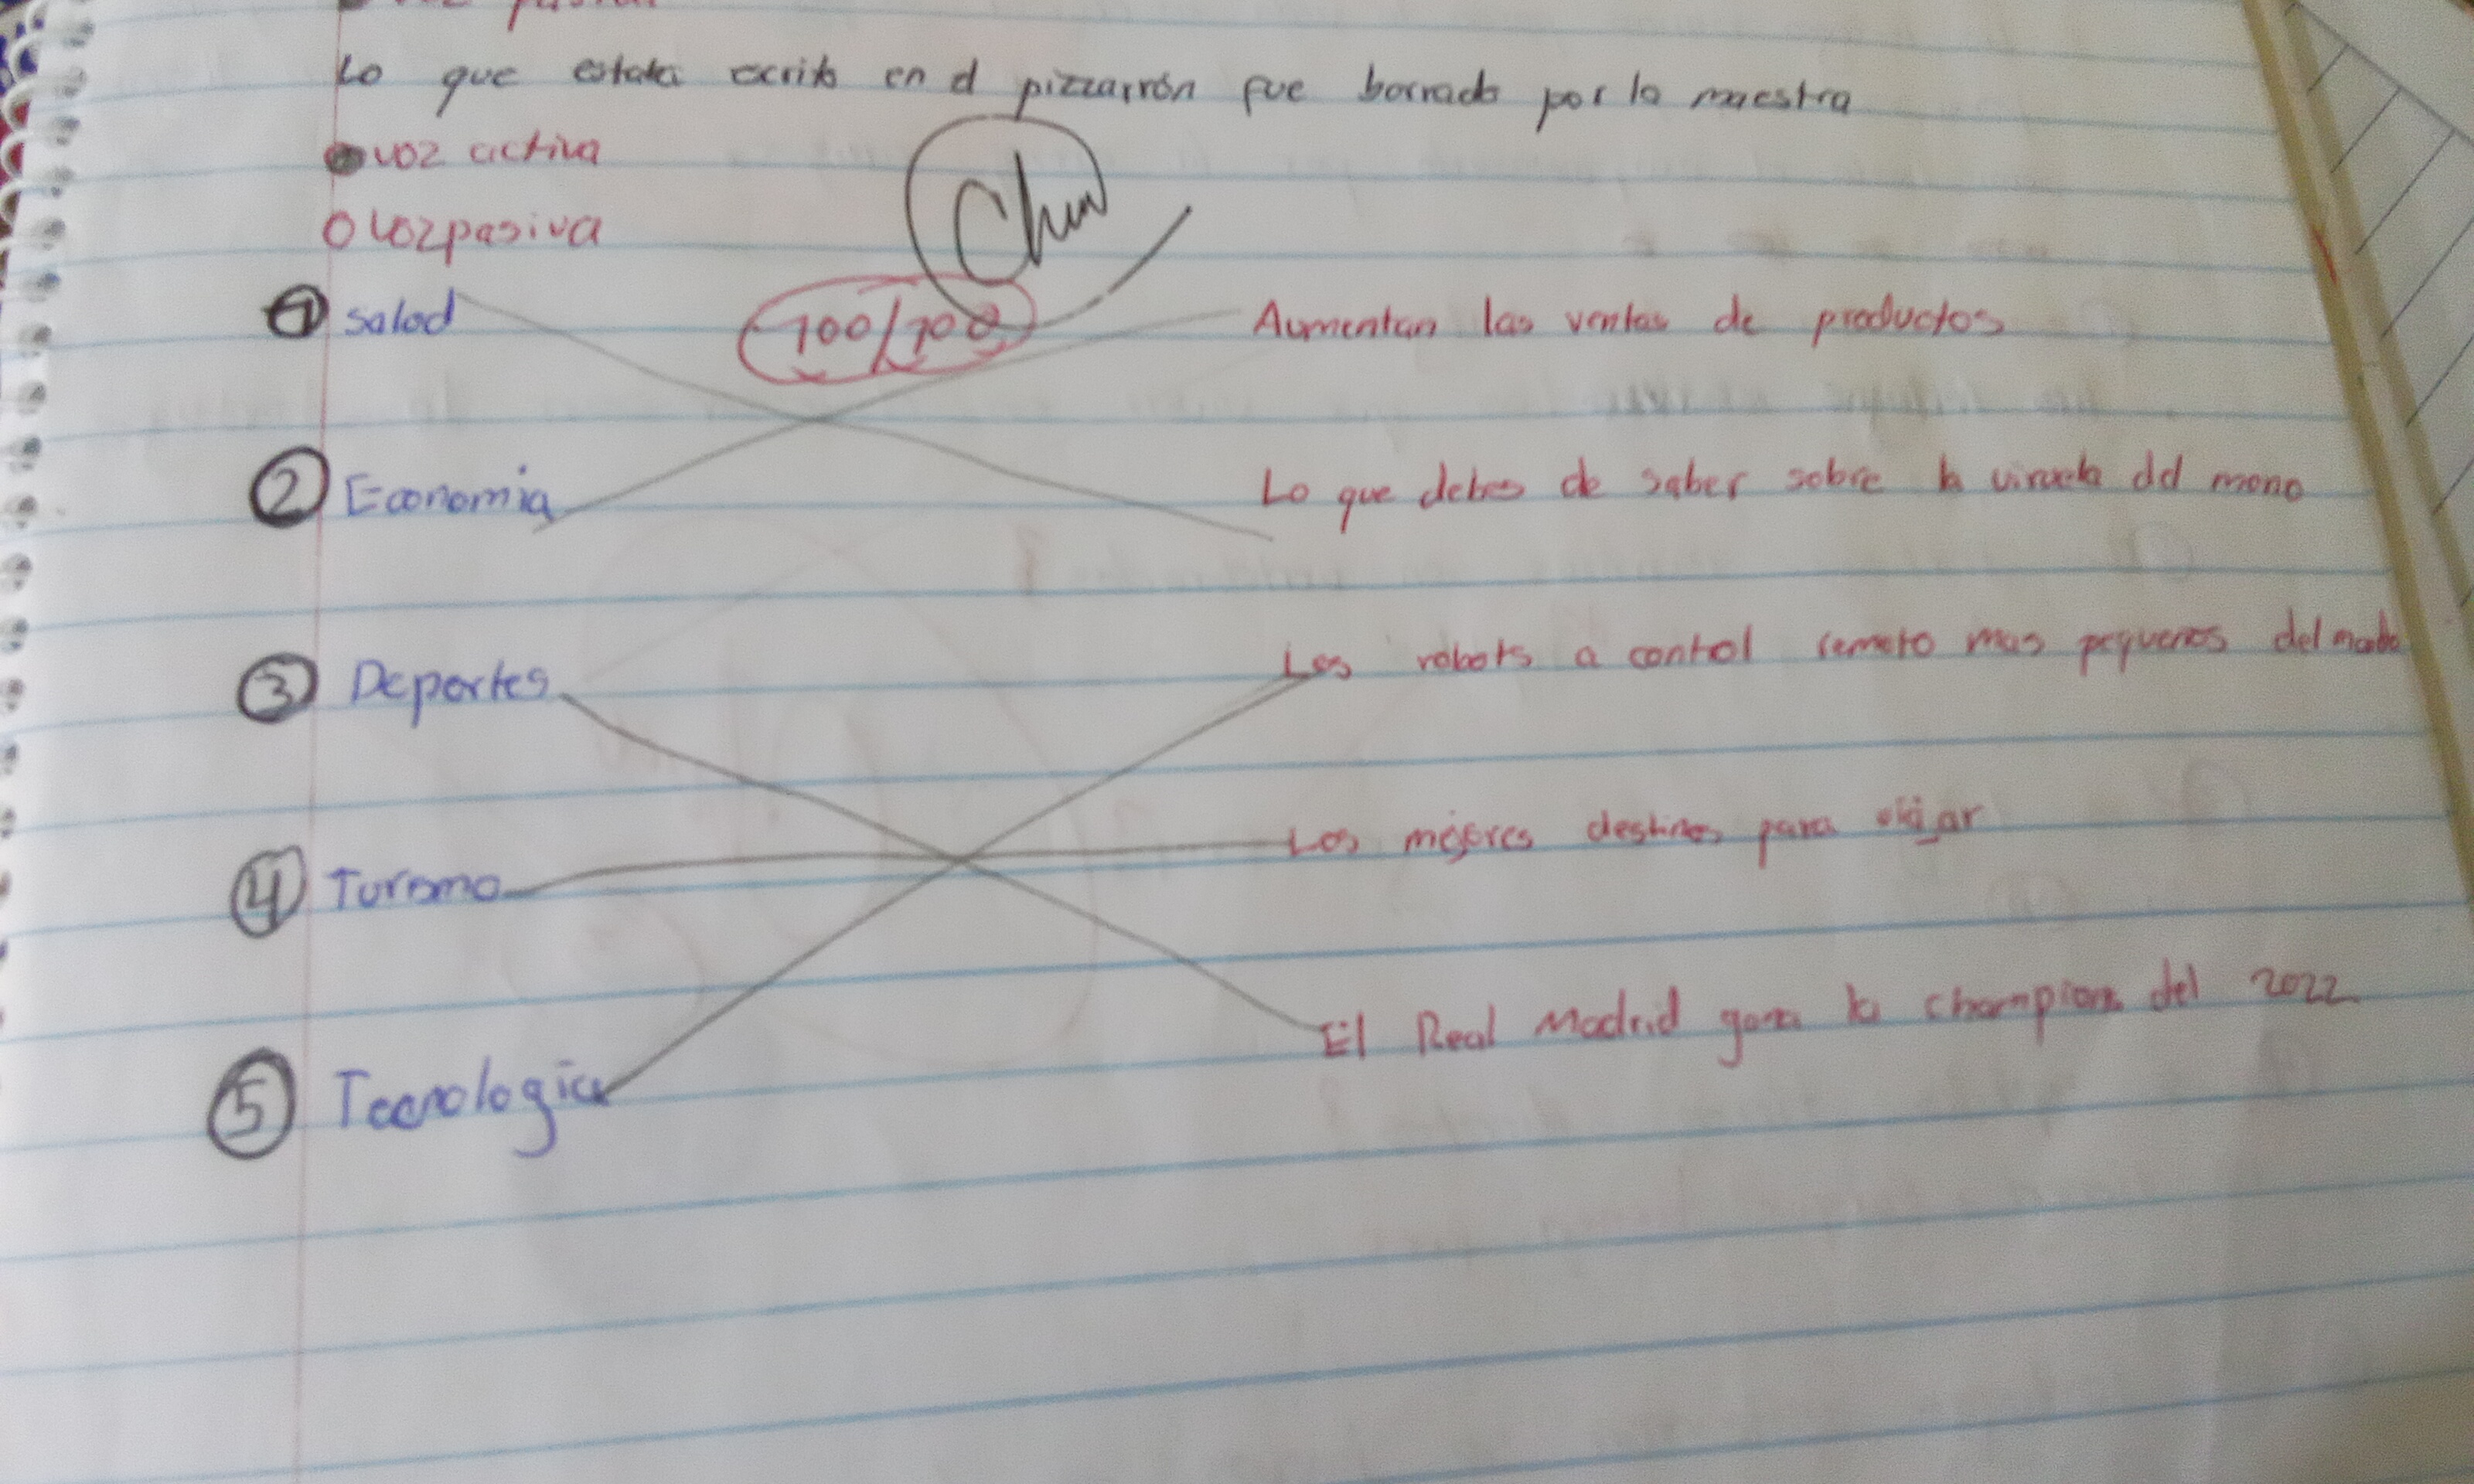 Lo que estaba escrito en el pizzarrón fue borrado por la maestra
voz activa
O voz pasiva
Chw
100/100
1 Salud
Aumentan las ventas de productos
2 Economia
Lo que debes de saber sobre la viruela del mono
3 Deportes
Los robots a control remoto mas pequeños del
4 Turismo
Los mejores destinos para viajar
5 Tecnologia
El Real Madrid gana la champions del 2022